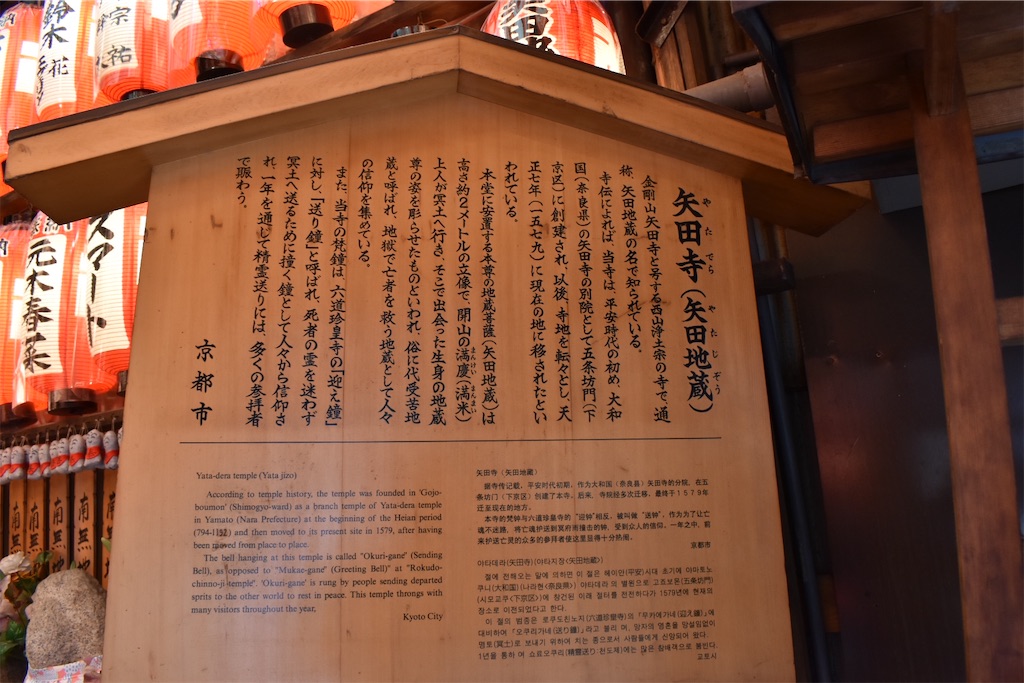 矢田寺(矢田地蔵)
やたでら
やたじぞう
金剛山矢田寺と号する西山浄土宗の寺で、通
称、矢田地蔵の名で知られている。
寺伝によれば、当寺は、平安時代の初め、大和
国(奈良県)の矢田寺の別院として五条坊門(下
京区)に創建され、以後、寺地を転々とし、天
正七年(一五七九)に現在の地に移されたとい
われている。
本堂に安置する本尊の地蔵菩薩(矢田地蔵)は
高さ約2メートルの立像で、開山の満慶(満米)
まんけい
まんまい
上人が冥土へ行き、そこで出会った生身の地蔵
尊の姿を彫らせたものといわれ、俗に代受苦地
蔵と呼ばれ、地獄で亡者を救う地蔵として人々
の信仰を集めている。
また、当寺の梵鐘は、六道珍皇寺の「迎え鐘」
に対し、「送り鐘」と呼ばれ、死者の霊を迷わず
冥土へ送るために撞く鐘として人々から信仰さ
れ、一年を通して精霊送りには、多くの参拝者
で賑わう。
京都市
Yata-dera temple (Yata jizo)
According to temple history, the temple was founded in 'Gojo-
boumon' (Shimogyo-ward) as a branch temple of Yata-dera temple
in Yamato (Nara Prefecture) at the beginning of the Heian period
(794-1152) and then moved to its present site in 1579, after having
been moved from place to place.
The bell hanging at this temple is called "Okuri-gane" (Sending
Bell), as opposed to "Mukae-gane" (Greeting Bell)" at "Rokudo-
chinno-ji-temple". 'Okuri-gane' is rung by people sending departed
sprits to the other world to rest in peace. This temple throngs with
many visitors throughout the year,
Kyoto City
矢田寺(矢田地藏)
据寺传记载,平安时代初期,作为太和国(奈良县)矢田寺的分院,在五
条坊门(下京区)创建了本寺。后来,寺院经多次迁移,最终于1579年
迁至现在的地方。
本寺的梵钟与六道珍皇寺的"迎钟"相反,被叫做"送钟",作为为了让亡
魂不迷路,将亡魂护送到冥府而撞击的钟,受到众人的信仰。一年之中,前
来护送亡灵的众多的参拜者使这里显得十分热闹。
京都市
야타데라(矢田寺)(야타지장(矢田地蔵))
절에 전해오는 말에 의하면 이 절은 헤이안(平安)시대 초기에 야마토노
쿠니(大和国)(나라현(奈良県)) 야타데라의 별원으로 고죠보몬(五条坊門)
(시모교쿠(下京区))에 창건된 이래 절터를 전전하다가 1579년에 현재의
장소로 이전되었다고 한다.
이 절의 범종은 로쿠도진노지(六道珍皇寺)의 「무카에가네(迎え鐘)」에
대비하여 「오쿠리가네(送り鐘)」라고 불리 며, 망자의 영혼을 망설임없이
명토(冥土)로 보내기 위하여 치는 종으로서 사람들에게 신앙되어 왔다.
1년을 통하 며 쇼료오쿠리(精霊送り:천도제)에는 많은 참배객으로 붐빈다.
교토시
鈴木花
宗祐
矢田
元木春菜
スマート
南無
南無
南無
南無